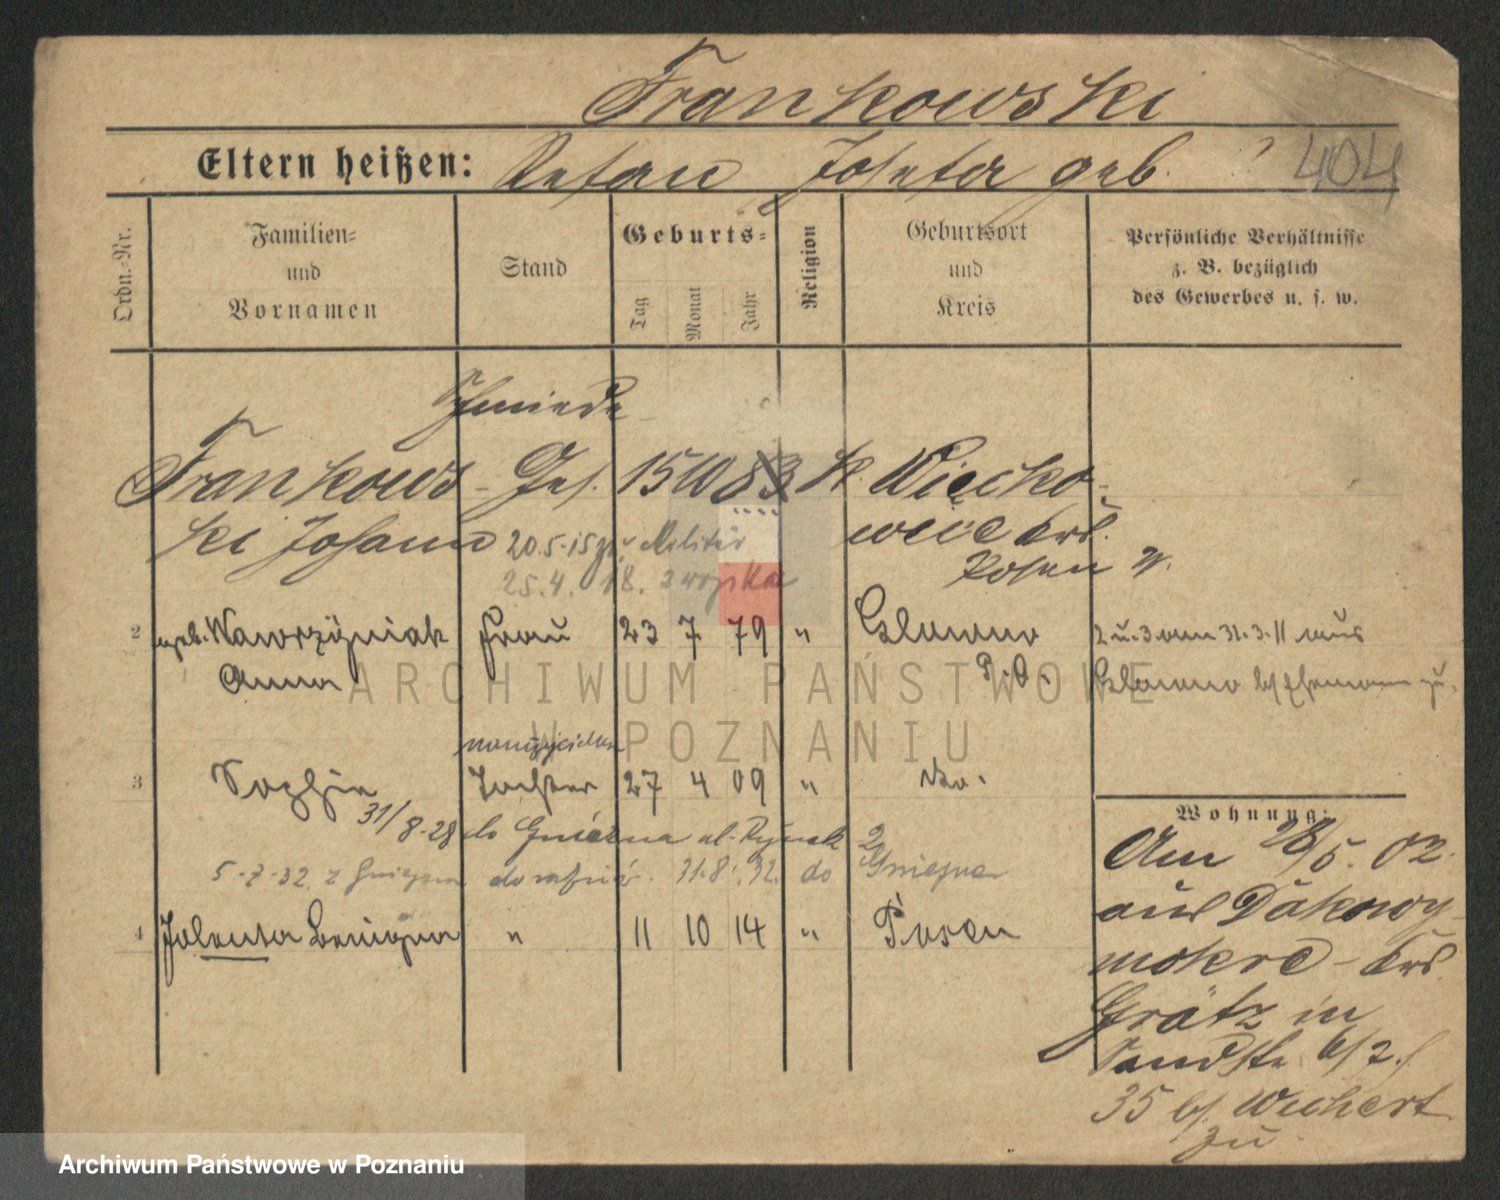 Frankowski
Eltern heißen: Stefan Josefa geb. ? 404
Ordn.-Nr.
Familien- und Vornamen
Stand
Geburts-
Tag
Monat
Jahr
Religion
Geburtsort und Kreis
Persönliche Verhältnisse z. B. bezüglich des Gewerbes u. s. w.
Schmiede-
Frankows- Ges. 15 10 83 k. Więcko-
ki Johann
wice Krs.
Posen W.
20.5.15 zu Militär
25.4.18. z wojska
2 geb. Wawrzyniak Frau 23 7 79 " Glowno
Anna P. O.
2 u. 3 am 31.3.11 aus
Glowno bs Ehemann zu.
nauczycielka
3 Sophie Tochter 27 4 09 " do.
31/8.28 do Gniezna ul. Rynek 2
5.7.32. z Gniezna 31.8.32. do Gniezna
4 Jolenta Benigna " 11 10 14 " Posen
Wohnung:
Am 28/5. 02.
aus Dakowy-
mokre - Krs.
Grätz in
Sandstr.
35 bs. Wichert
zu.
ARCHIWUM PAŃSTWOWE
W POZNANIU
Archiwum Państwowe w Poznaniu